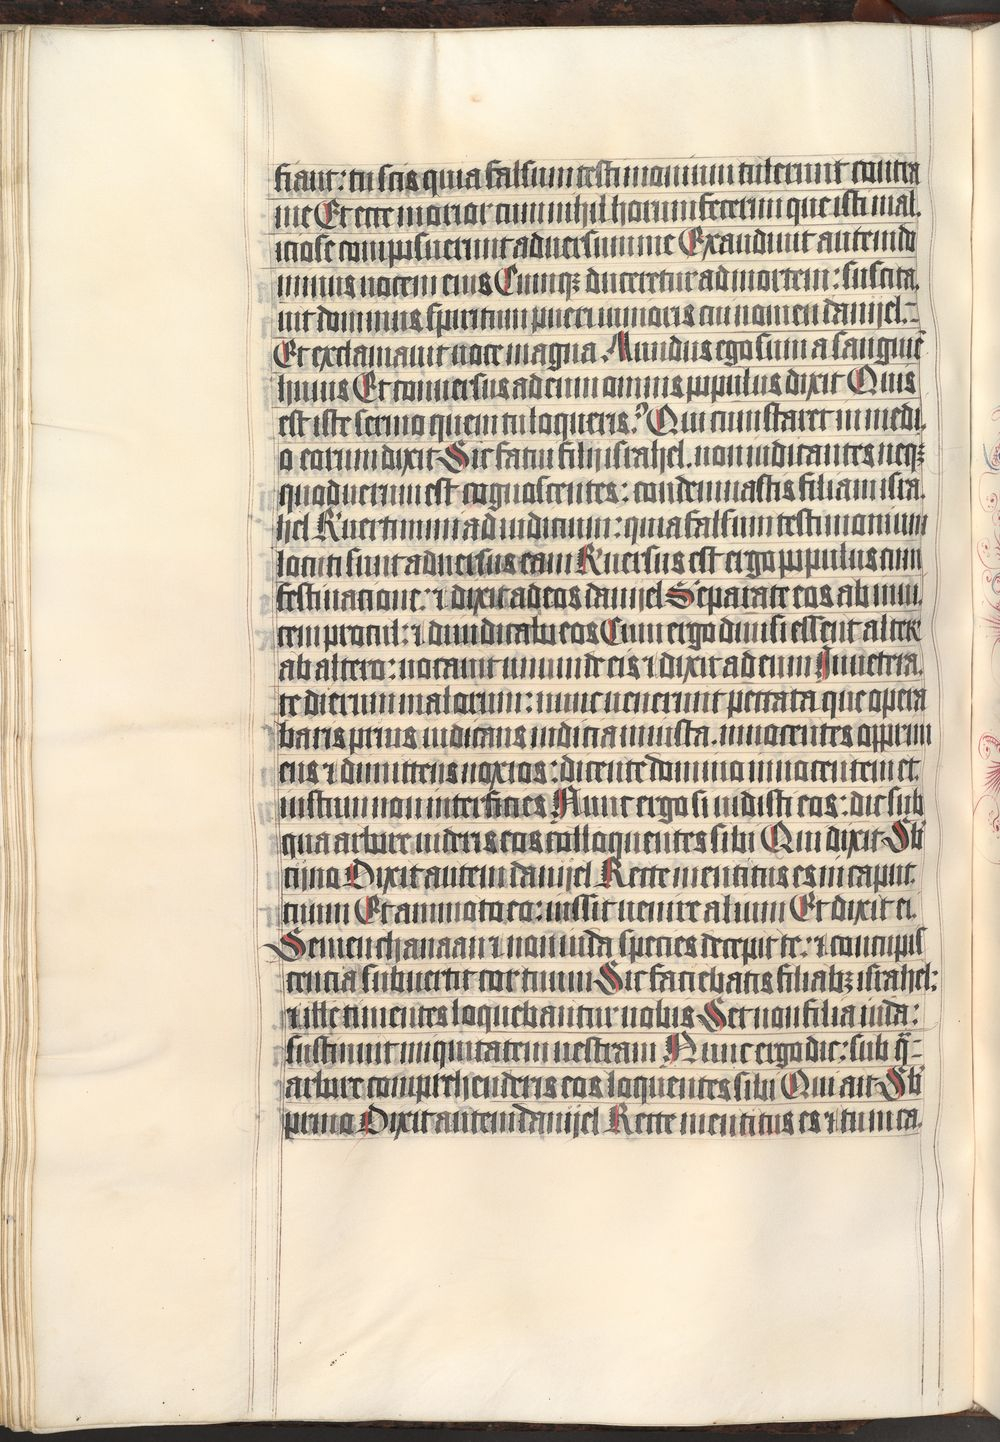 fiant: tu scis quia falsum testimonium tulerunt contra
me Et ecce morior cum nihil horum fecerim que isti mal.
iciose composuerunt adversum me Exaudivit autem do
minus vocem eius Cumqꝫ duceretur ad mortem: suscita.
vit dominus spiritum pueri iunioris cui nomen danijel.
Et exclamavit voce magna. Mundus ego sum a sanguinē
huius Et conversus ad eum omnis populus dixit Quis
est iste sermo quem tu loqueris? Qui cum staret in medi.
o eorum dixit Sic fatui filij israhel. non iudicantes neqꝫ
quod verum est cognoscentes: condemnastis filiam isra.
hel R'vertimini ad iudicium: quia falsum testimonium
locuti sunt adversus eam R'versus est ergo populus cum
festinatione: ⁊ dixit ad eos danijel Separate eos ab invi.
cem procul: ⁊ diiudicabo eos Cum ergo divisi essent alter
ab altero: vocavit unum de eis ⁊ dixit ad eum Invetera.
te dierum malorum: nunc venerunt peccata que opera
baris prius iudicans iudicia iniusta. innocentes opprim
ens ⁊ dimittens noxios: dicente domino innocentem et.
iustum non interficies Nunc ergo si vidisti eos: dic sub
qua arbore videris eos colloquentes sibi Qui dixit Sb'
cijno Dixit autem danijel Recte mentitus es in caput.
tuum Et ammoto eo: iussit venire alium Et dixit ei.
Semen chanaan ⁊ non iuda species decepit te: ⁊ concupis
centia subvertit cor tuum Sic faciebatis filiabꝫ israhel:
⁊ ille timentes loquebantur vobis Set non filia iuda:
sustinuit iniquitatem vestram Nunc ergo dic: sub q̄
arbore comprehenderis eos loquentes sibi Qui ait Sb'
primo Dixit autem danijel Recte mentitus es ⁊ tu in ca.